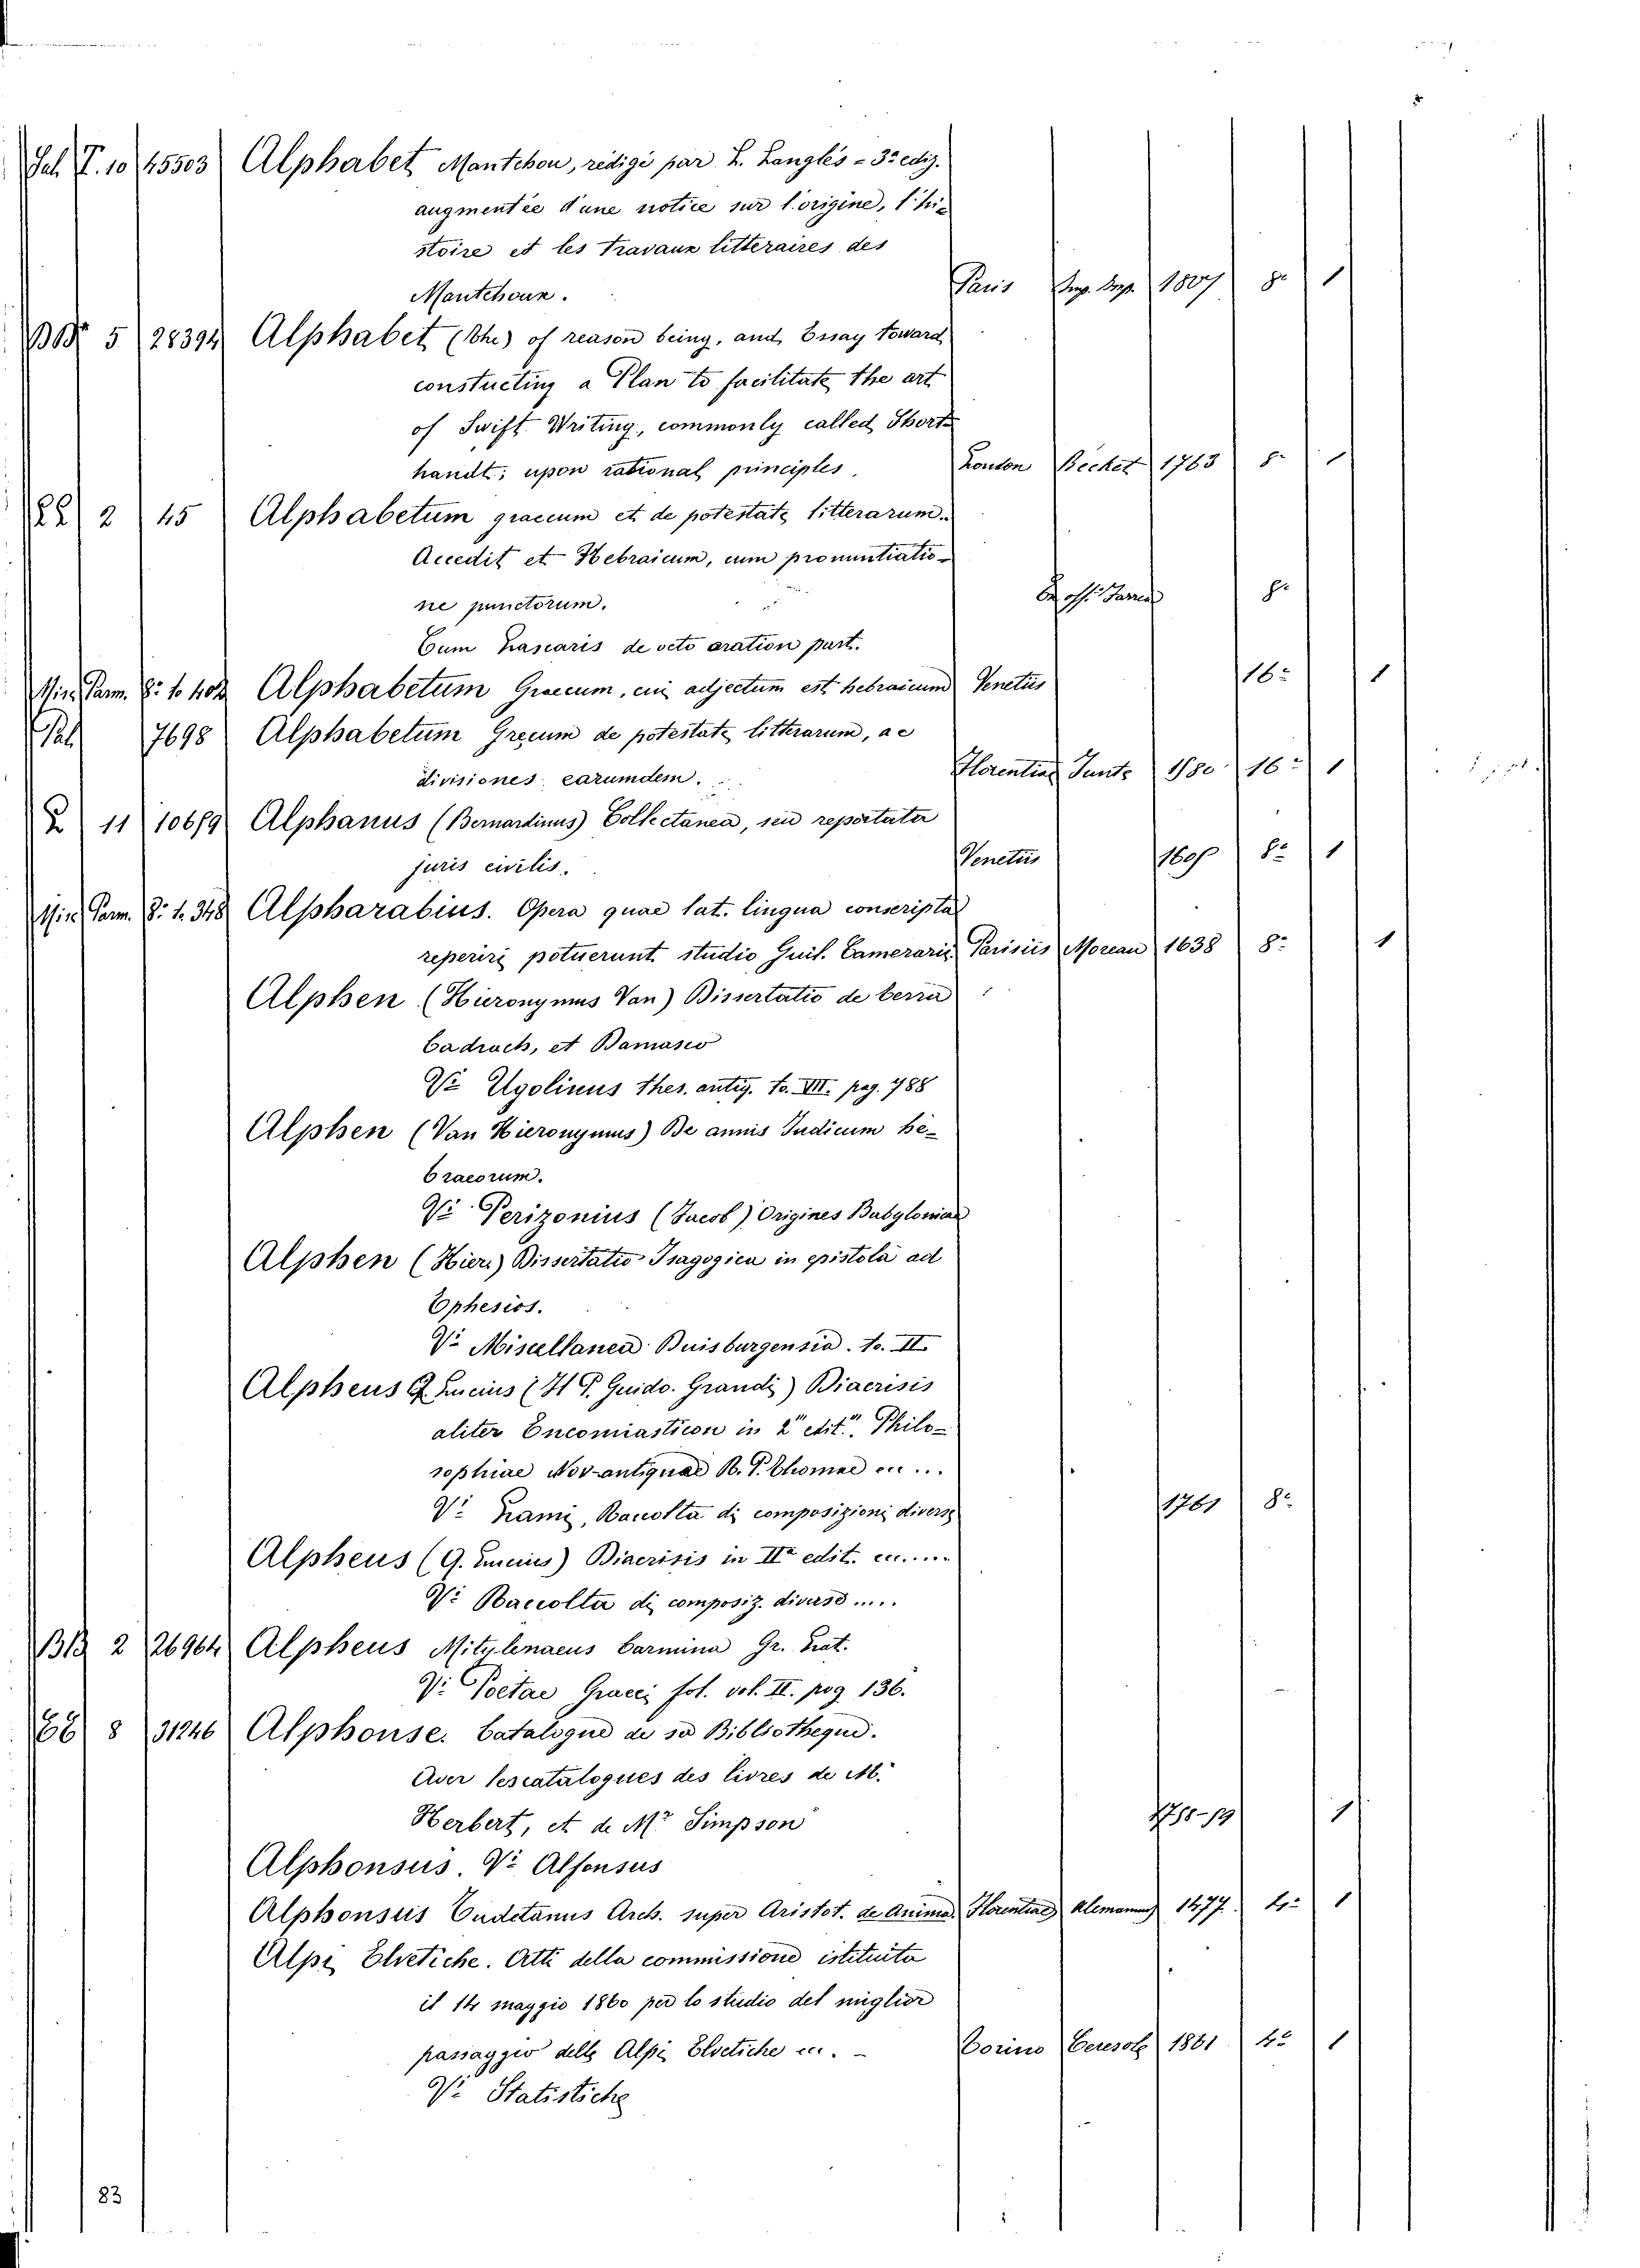 Sal. T. 10 45503 Alphabet Mantchou, rédigé par L. Langlés - 3e ediz.
augmentée d'une notice sur l'origine, l'hi-
stoire et les Travaux litteraires des
Mantchoux. Paris Imp. Imp. 1807 8o 1
5 28394 Alphabet (The) of reason being, and Essay toward
constucting a Plan to facilitate the art
of Swift Writing, commonly called Short-
handt; upon rational principles. London Becket 1763 8o 1
2 45 Alphabetum graecum et de potestate litterarum.
Accedit et Hebraicum, cum pronuntiatio-
ne punctorum. 8o
Cum Lascaris de octo oration part.
Min. Parm. Alphabetum Graecum, cui adjectum est hebraicum Venetiis 16o 1
Pal. 7698 Alphabetum Grecum de potestate litterarum, ac
divisiones earumdem. Florentiae Junte 1580 16o 1
11 10689 Alphanus (Bernardinus) Collectanea, seu reportata
juris civilis. Venetiis 8o 1
Min. Parm. 8o 1. 348 Alpharabius. Opera quae lat. lingua conscripta
reperiri potuerunt studio Guil. Camerarii Parisiis Moreau 1638 8o 1
Alphen (Hieronymus Van) Dissertatio de terra
Cadrach, et Damasco
Vi Ugolinus thes. antiq. to. VII. pag. 788
Alphen (Van Hieronymus) De annis Judicum he-
braeorum.
Vi Perizonius (Jacob) Origines Babylonicae
Alphen (Hier.) Dissertatio Isagogica in epistola ad
Ephesios.
Vi Miscellanea Duisburgensia. to. II.
Alpheus G. Lucius (H P. Guido. Grandi) Diacrisis
aliter Encomiasticon in 2a edit. Philo-
sophiae Nov-antiquae R. P. Thomae ec ...
Vi Lami, Raccolta di composizioni diverse 1761 8o
Alpheus (G. Lucius) Diacrisis in IIa edit. ec. ....
Vi Raccolta di composiz. diverse .....
BB 2 26964 Alpheus Mitylenaeus Carmina Gr. Lat.
Vi Poetae Graeci fol. vol. II. pag 136.
8 31246 Alphonse. Catalogue de sa Bibliotheque.
Aver lescatalogues des livres de M.
Herbert, et de Mr Simpson 1 
Alphonsus. Vi Alfonsus
Alphonsus Eudetanus Arch. super Aristot. de Anima. Florentiae Alemannus 1477. 4o 1
Alpi Elvetiche. Atti della commissione istituita
il 14 maggio 1860 per lo studio del miglior
passaggio delle Alpi Elvetiche ec. - Torino Ceresole 1861 4o 1
Vi Statistiche
83